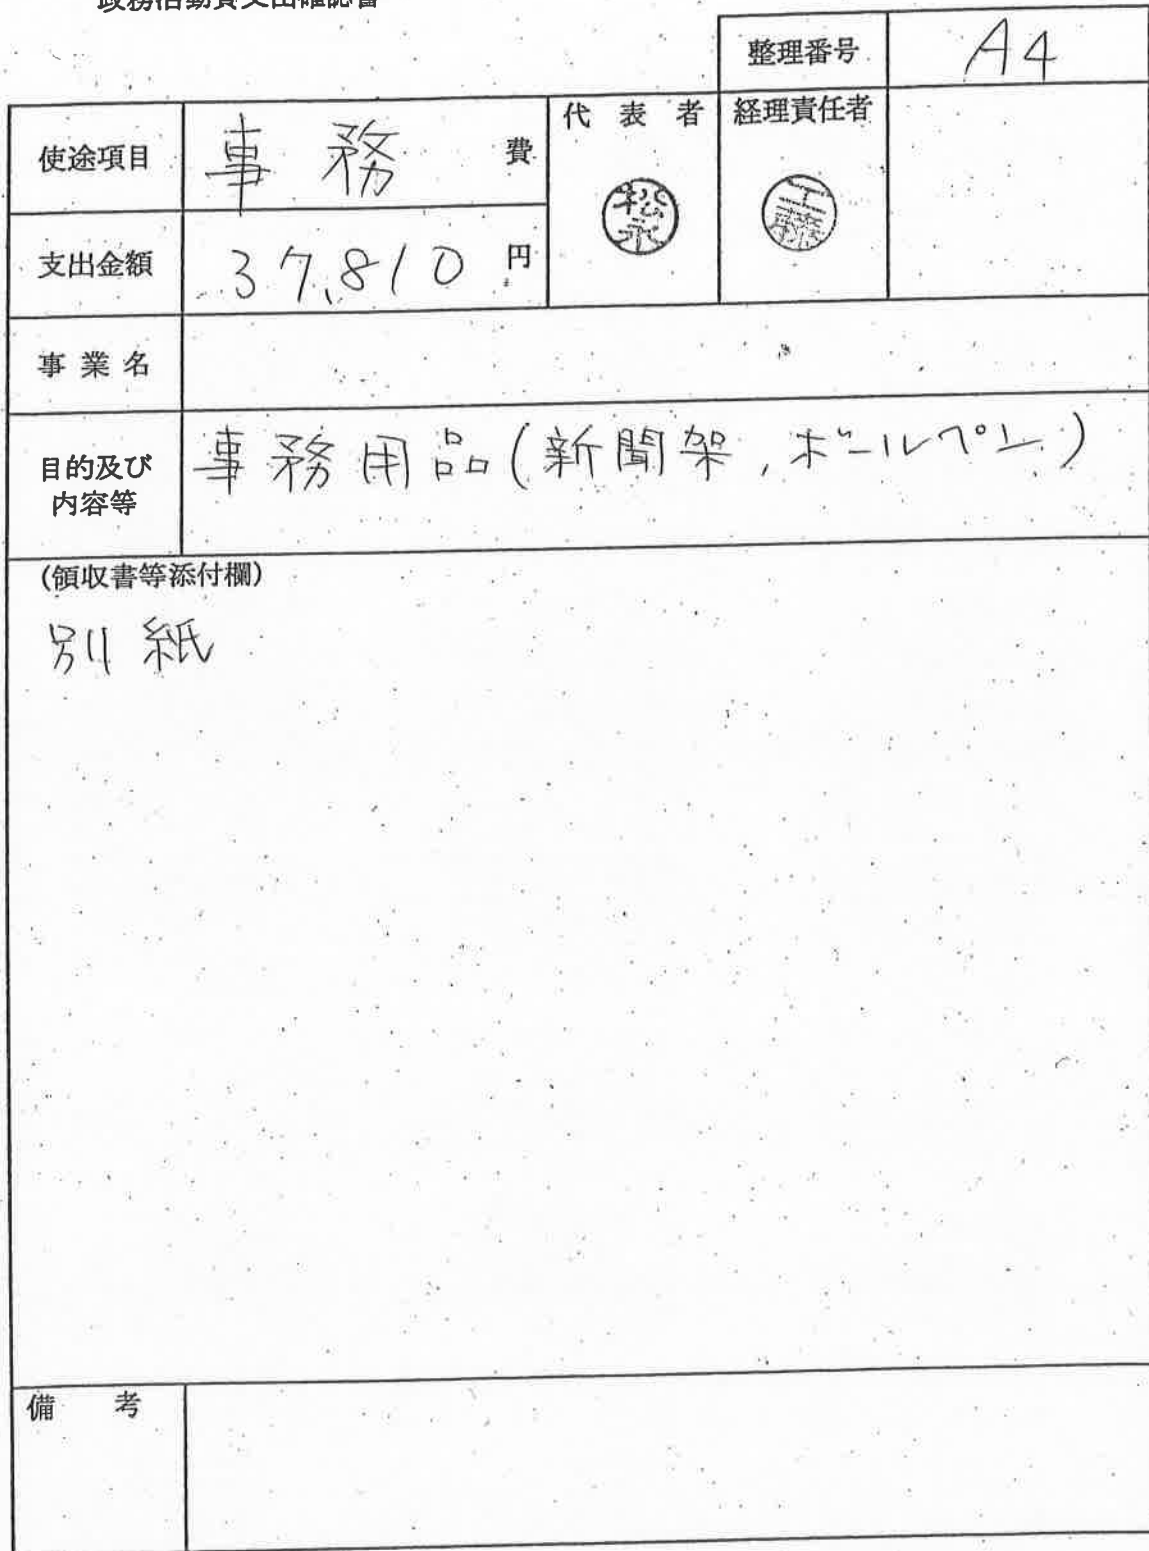 政務活動費支出確認書
整理番号 A4
使途項目 事務費
代表者 経理責任者
松永 工藤
支出金額 37,810円
事業名
目的及び内容等 事務用品(新聞架,ボールペン)
(領収書等添付欄)
別紙
備考